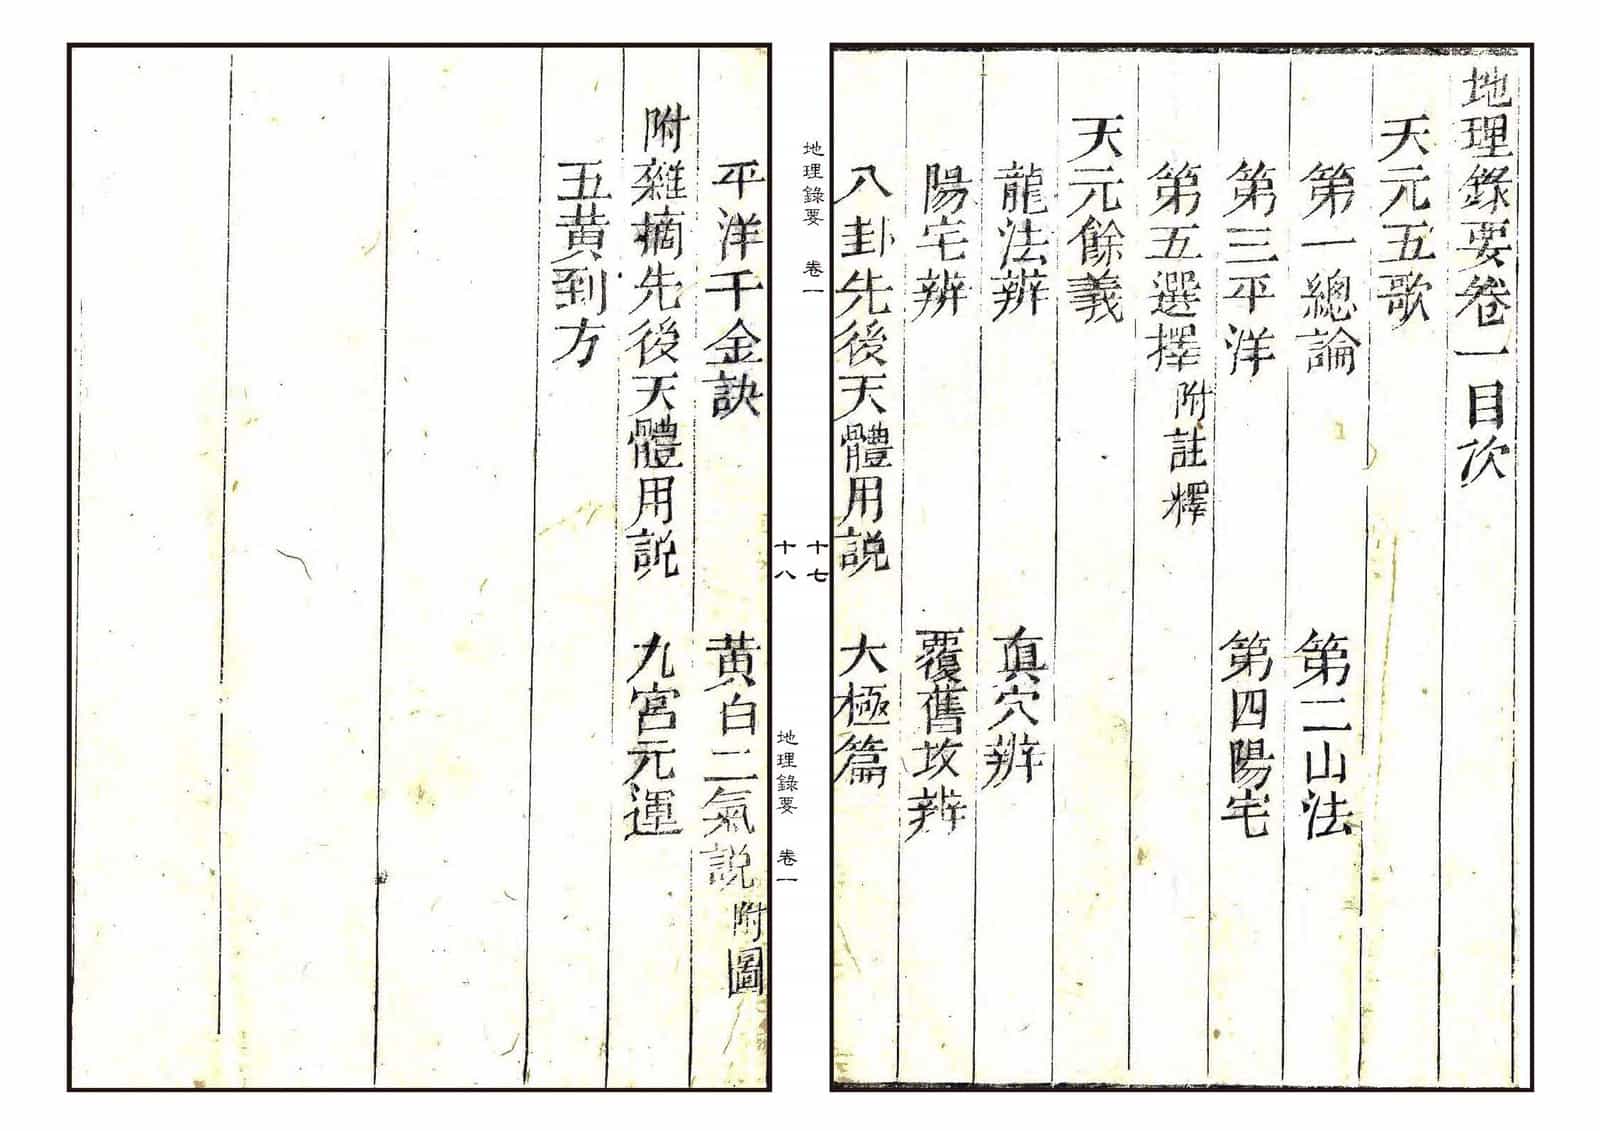 地理錄要卷一目次
天元五歌
第一總論 第二山法
第三平洋 第四陽宅
第五選擇附註釋
天元餘義
龍法辨 真穴辨
陽宅辨 覆舊攻辨
八卦先後天體用説 大極篇
地理錄要 卷一
十七
平洋千金訣 黃白二氣説附圖
附雜摘先後天體用説 九宮元運
五黃到方
地理錄要 卷一
十八